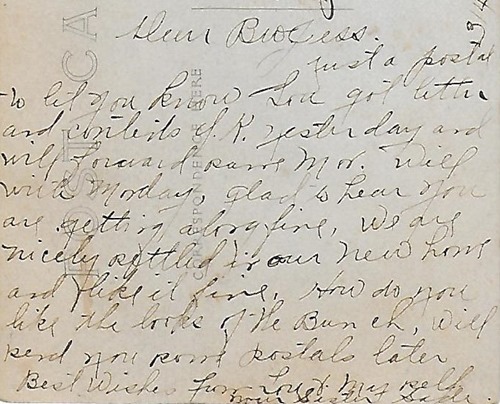 Dear Burgess.
just a postal
to let you know Lou got letter
and contents O.K. yesterday and
will forward same Mon. Will
write Monday, glad to hear you
are getting along fine, We are
nicely settled in our new home
and like it fine. How do you
like the looks of the Bunch, will
send you some postals later
Best Wishes from Lou & Myself
Your Sister Sade.
POST CA
CORRESPONDENCE HERE